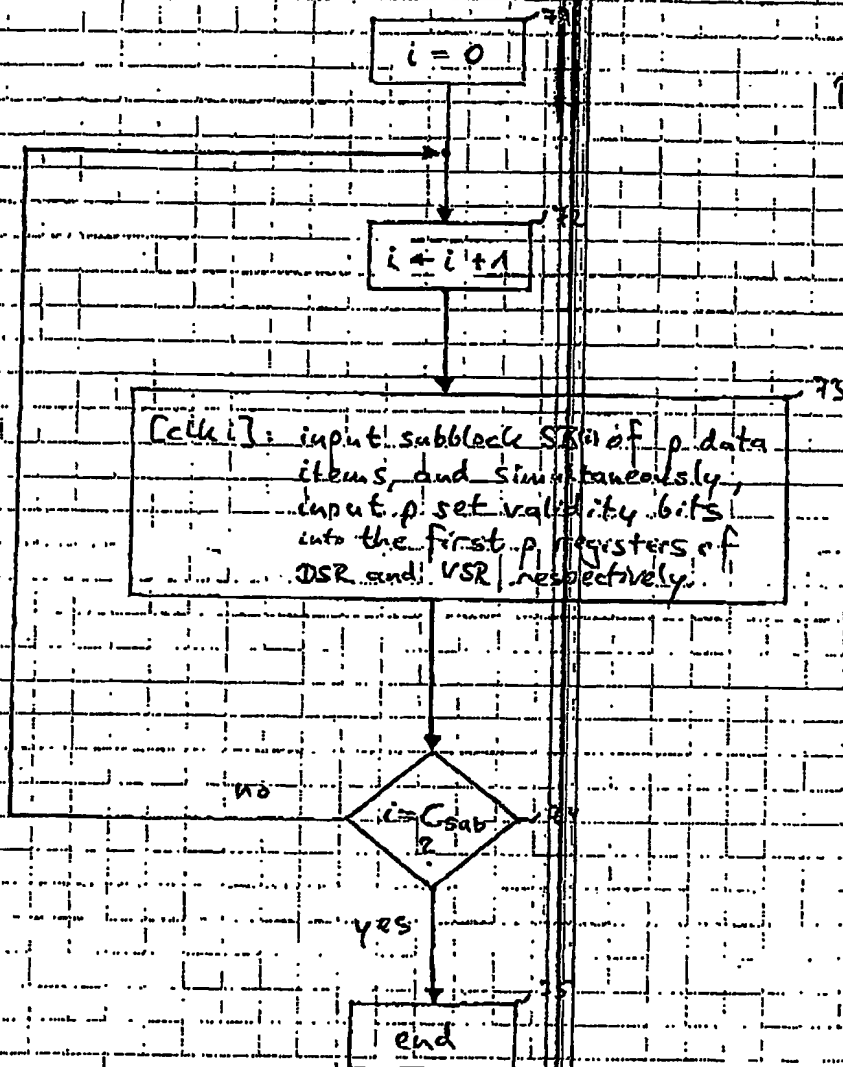 i = 0
72
i ← i + 1
73
[clk i]: input subblock SB(i) of p data
items, and simultaneously,
input p set validity bits
into the first p registers of
DSR and VSR respectively.
no
i = Csub
?
yes
75
end